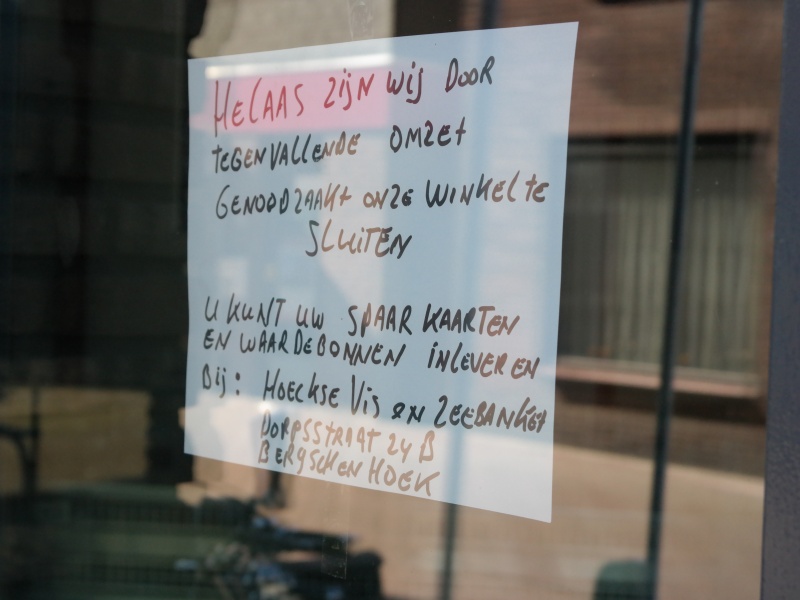 HELAAS ZIJN WIJ DOOR
TEGENVALLENDE OMZET
GENOODZAAKT ONZE WINKEL TE
SLUITEN
U KUNT UW SPAAR KAARTEN
EN WAARDEBONNEN INLEVEREN
BIJ: HOECKSE VIS EN ZEEBANKET
DORPSSTRAAT 24 B
BERGSCHENHOEK